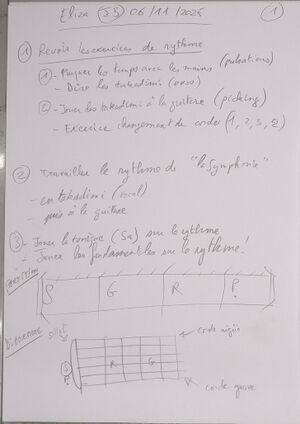 Eliza (S5) 06/11/2025 (1)
① Revoir les exercices de rythme
①- Frapper les temps avec les mains (pulsations)
- Dire les takadimi (oral)
②- Jouer les takadimi à la guitare (picking)
- Exercice changement de corde (1, 2, 3, 2)
② Travailler le rythme de "la Symphonie"
- en takadimi (vocal)
- puis à la guitare
③ - Jouer la tonique (Sa) sur le rythme
- Jouer les fondamentales sur le rythme !
PARTITION
S G R P
DIAGRAMME
Sillet
corde aigüe
S
P
R G
corde grave